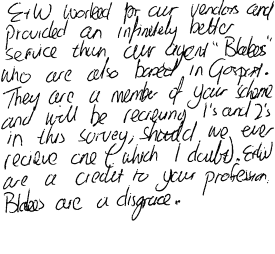 E+W worked for our vendors and
provided an infinitely better
service than our agent "Blakes"
who are also based in Gosport.
They are a member of your scheme
and will be recieving 1's and 2's
in this survey, should we ever
recieve one (which I doubt). E+W
are a credit to your profession.
Blakes are a disgrace.